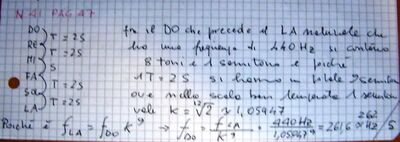 N 41 PAG 47
DO
RE } T = 2S
MI } T = 2S
FA } S
SOL } T = 2S
LA } T = 2S
fra il DO che precede il LA naturale che
ha una frequenza di 440 Hz si contano
8 toni e 1 semitono e poiché
1T = 2S si hanno in totale 9 semitoni
ove nella scala ben temperata 1 semitono
vale k = ¹²√2 ≈ 1,05947
Poiché è f_LA = f_DO k⁹ → f_DO = f_LA / k⁹ = 440Hz / 1,05947⁹ = 261,6 ≈ 262 Hz